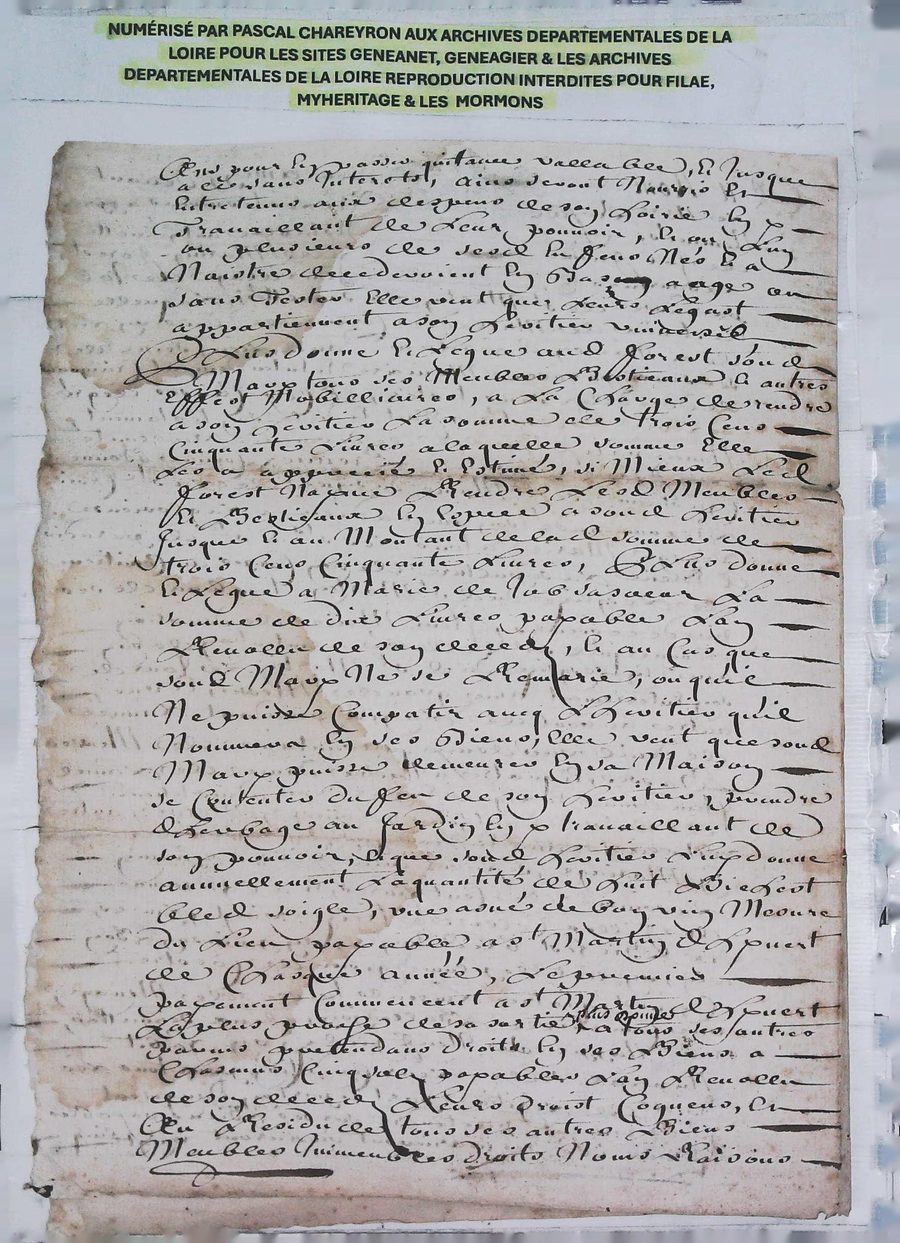 NUMÉRISÉ PAR PASCAL CHAREYRON AUX ARCHIVES DEPARTEMENTALES DE LA
LOIRE POUR LES SITES GENEANET, GENEAGIER & LES ARCHIVES
DEPARTEMENTALES DE LA LOIRE REPRODUCTION INTERDITES POUR FILAE,
MYHERITAGE & LES MORMONS
pour passer quitance vallable, et Jusque
a ce sans Interests, ains seront Nourris et
Entretenus aux despens de son hoirie en y
Travaillant de Leur pouvoir, et ou L'un
ou plusieurs de sesd Enfens Nés et a
Naistre decederoient En bas aage ou
sans Tester Elle veut que Leurs Legast
appartiennent a son heritier universel
Plus donne et Legue aud forest sond
Mary tous ses Meubles Bestieaux et autres
Effest Mobilliaires, a La Charge de rendre
a son heritier La somme de trois Cens
Cinquante Livres a laquelle somme Elle
Les a apprecié et Estimé, si Mieux Led
forest N'ayme Rendre Lesd Meubles
Et Bestieaux En Espece a sond heritier
Jusque et au Montant de lad somme de
trois Cens Cinquante Livres, Plus donne
et Legue a Marie de Job sa soeur La
somme de dix Livres payable L'an
Revollu de son deced, et au Cas que
sond Mary Ne se Remarie, ou qu'il
Ne puisse Compatir avec L'heritier qu'il
Nommera En ses Biens, Elle veut que sond
Mary puisse demeurer En sa Maison
se Contenter du feu de son heritier, prendre
d'herbage au Jardin En y travaillant de
son pouvoir, et que sond heritier Luy donne
annuellement La quantité de huit Bichest
bled soigle, une asné de bon vin Mesure
du Lieu payable a st Martin d'hyvert
de Chasque année, Le premier
payement Commencent a st Martin d'hyvert
La plus proche de sa sortie, a tous ses autres
parens pretendans droits En ses Biens a
Chascuns Cinq solz payables L'an Revollu
de son deced,
Au Residu de tous ses autres Biens
Meubles Immeubles droits Noms Raisons